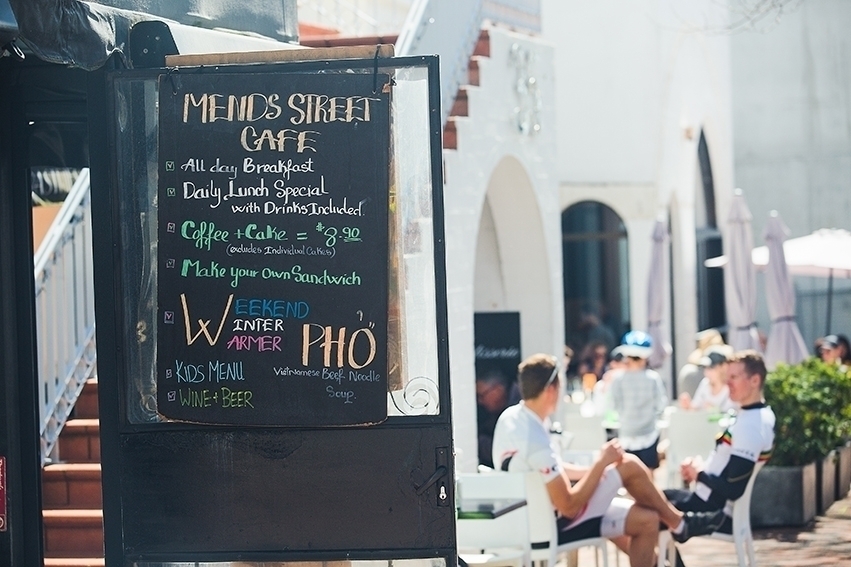 MENDS STREET
CAFE
All day Breakfast
Daily Lunch Special
with Drinks Included.
Coffee + Cake = $8.90
(excludes Individual Cakes)
Make your Own Sandwich
WEEKEND
WINTER
WARMER
PHỞ
Vietnamese Beef Noodle
Soup.
KIDS MENU
WINE + BEER